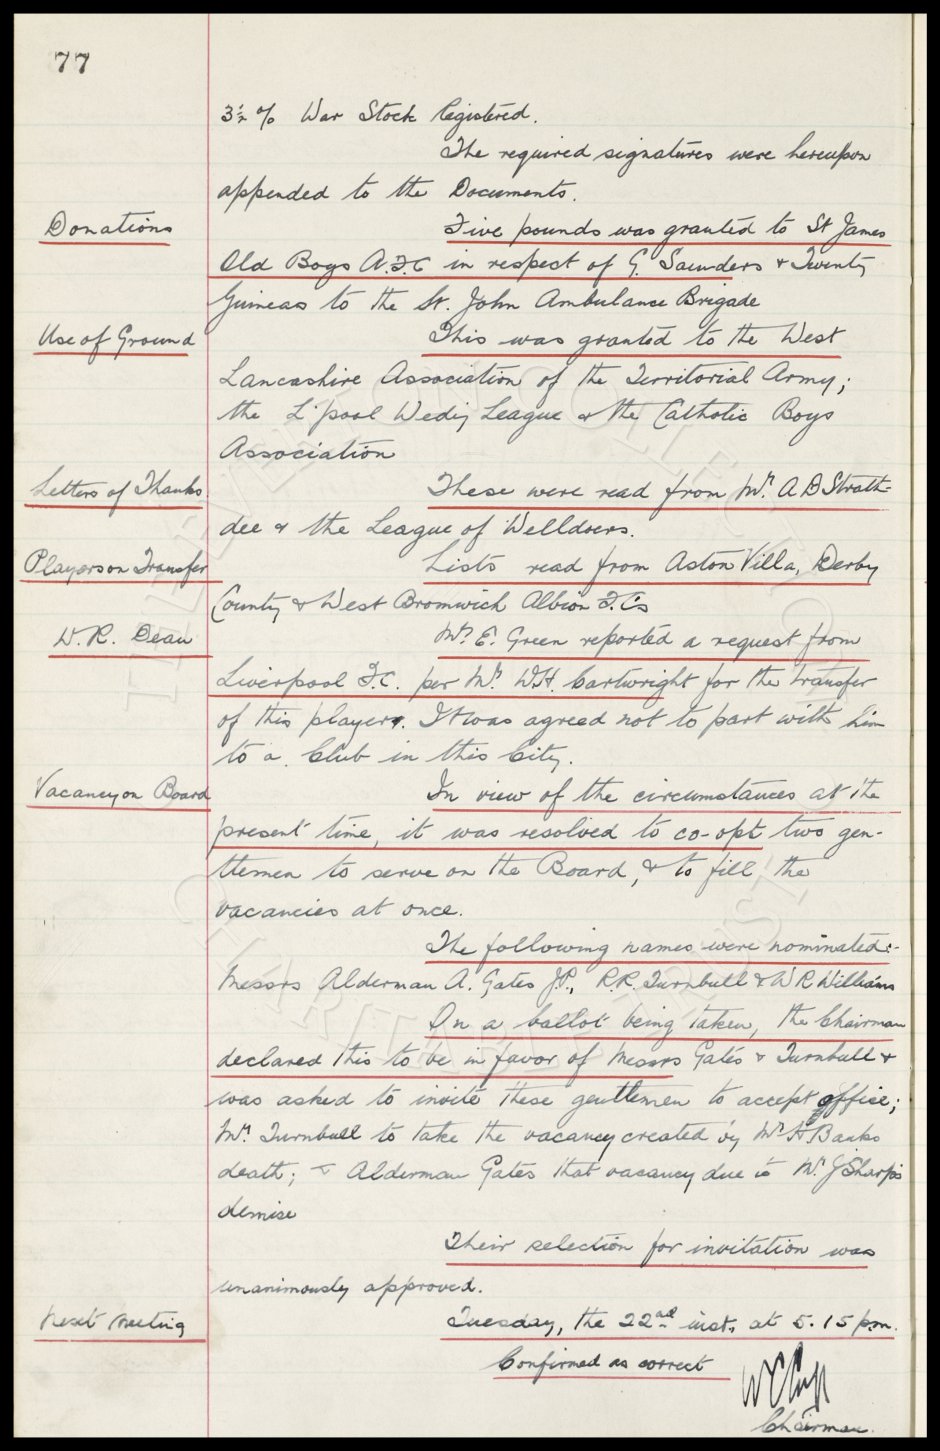 77
3½ % War Stock Registered.
The required signatures were hereupon
appended to the Documents.
Donations Five pounds was granted to St James
Old Boys A.F.C in respect of G. Saunders & Twenty
Guineas to the St. John Ambulance Brigade
Use of Ground This was granted to the West
Lancashire Association of the Territorial Army;
the L'pool Wed'y League & the Catholic Boys
Association
Letters of Thanks These were read from Mr. A B Strath-
dee & the League of Welldoers.
Players on Transfer Lists read from Aston Villa, Derby
County & West Bromwich Albion F.Cs
W. R. Dean Mr. E. Green reported a request from
Liverpool F.C. per Mr. W.H. Cartwright for the transfer
of this player. It was agreed not to part with him
to a Club in this City.
Vacancy on Board In view of the circumstances at the
present time, it was resolved to co-opt two gen-
tlemen to serve on the Board, & to fill the
vacancies at once.
The following names were nominated:-
Messrs Alderman A. Gates J.P., R.R. Turnbull & W R Williams
On a ballot being taken, the Chairman
declared this to be in favor of Messrs Gates & Turnbull &
was asked to invite these gentlemen to accept office;
Mr. Turnbull to take the vacancy created by Mr. H. Banks
death; & Alderman Gates that vacancy due to Mr. J Sharp's
demise
Their selection for invitation was
unanimously approved.
Next Meeting Tuesday, the 22nd inst. at 5.15 p.m.
Confirmed as correct
W C Cuff
Chairman.
THE EVERTON COLLECTION
CHARITABLE TRUST